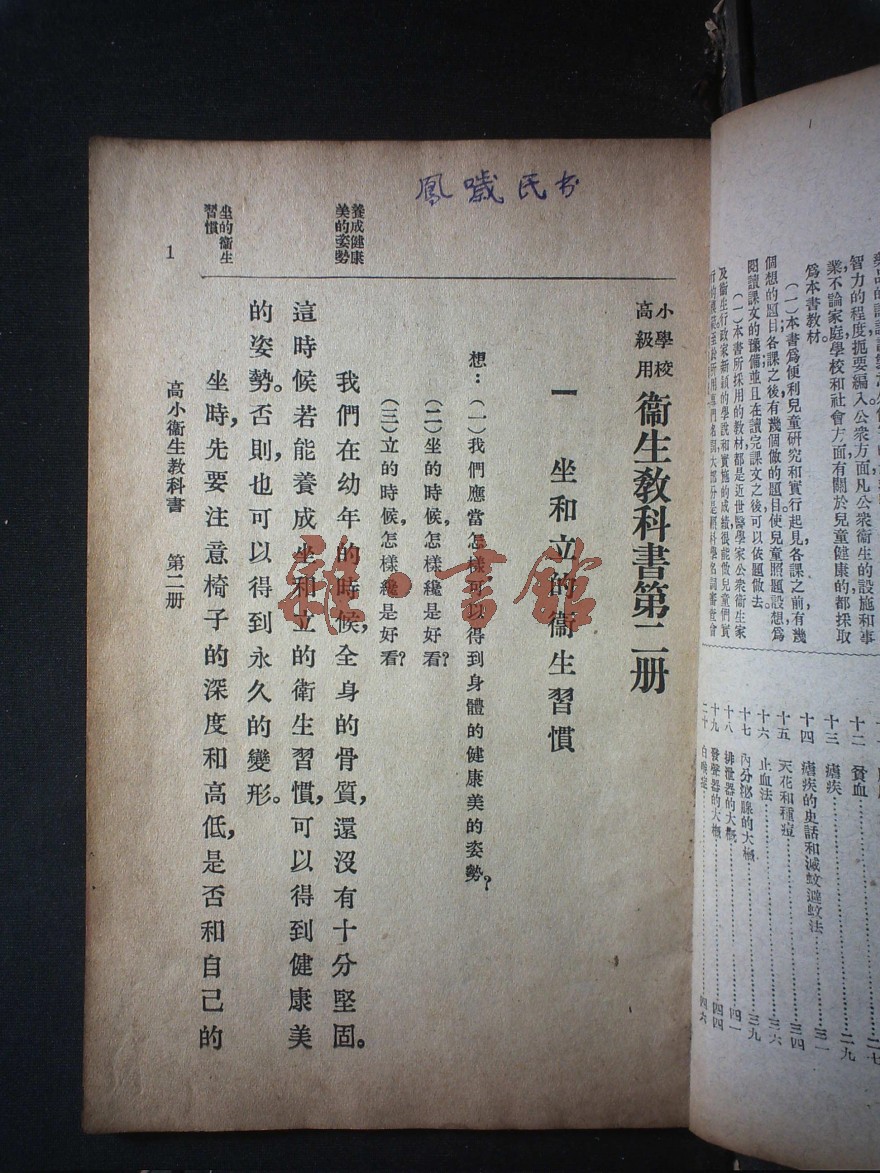 鳳噦民书
小學校
高級用
衞生教科書第二册
一 坐和立的衞生習慣
想：(一)我們應當怎樣可以得到身體的健康美的姿勢？
(二)坐的時候，怎樣纔是好看？
(三)立的時候，怎樣纔是好看？
養成健康
美的姿勢
我們在幼年的時候，全身的骨質，還沒有十分堅固。
這時候若能養成坐和立的衛生習慣，可以得到健康美
的姿勢。否則，也可以得到永久的變形。
坐的衞生
習慣
坐時，先要注意椅子的深度和高低，是否和自己的
1
高小衞生教科書 第二册
雜·書館
1
智力的程度扼要編入公衆方面凡公衆衞生的設施和事
業不論家庭學校和社會方面有關於兒童健康的都採取
爲本書教材。
(一)本書爲便利兒童研究和實行起見各課之前有幾
個想的題目；各課之後有幾個做的題目使兒童照題設想爲
閱讀課文的豫備並且在讀完課文之後可以依題做去。
(一)本書所採用的教材，都是近世醫學家公衆衞生家
及衞生行政家新穎的學說和實施的成績，很能做兒童們實
十二 貧血……二九
十三 瘧疾……三一
十四 瘧疾的史話和滅蚊避蚊法……三四
十五 天花和種痘……三六
十六 止血法……三九
十七 內分祕腺的大概……四一
十八 排泄器的大概……四四
十九 發聲器的大概……四六
二十